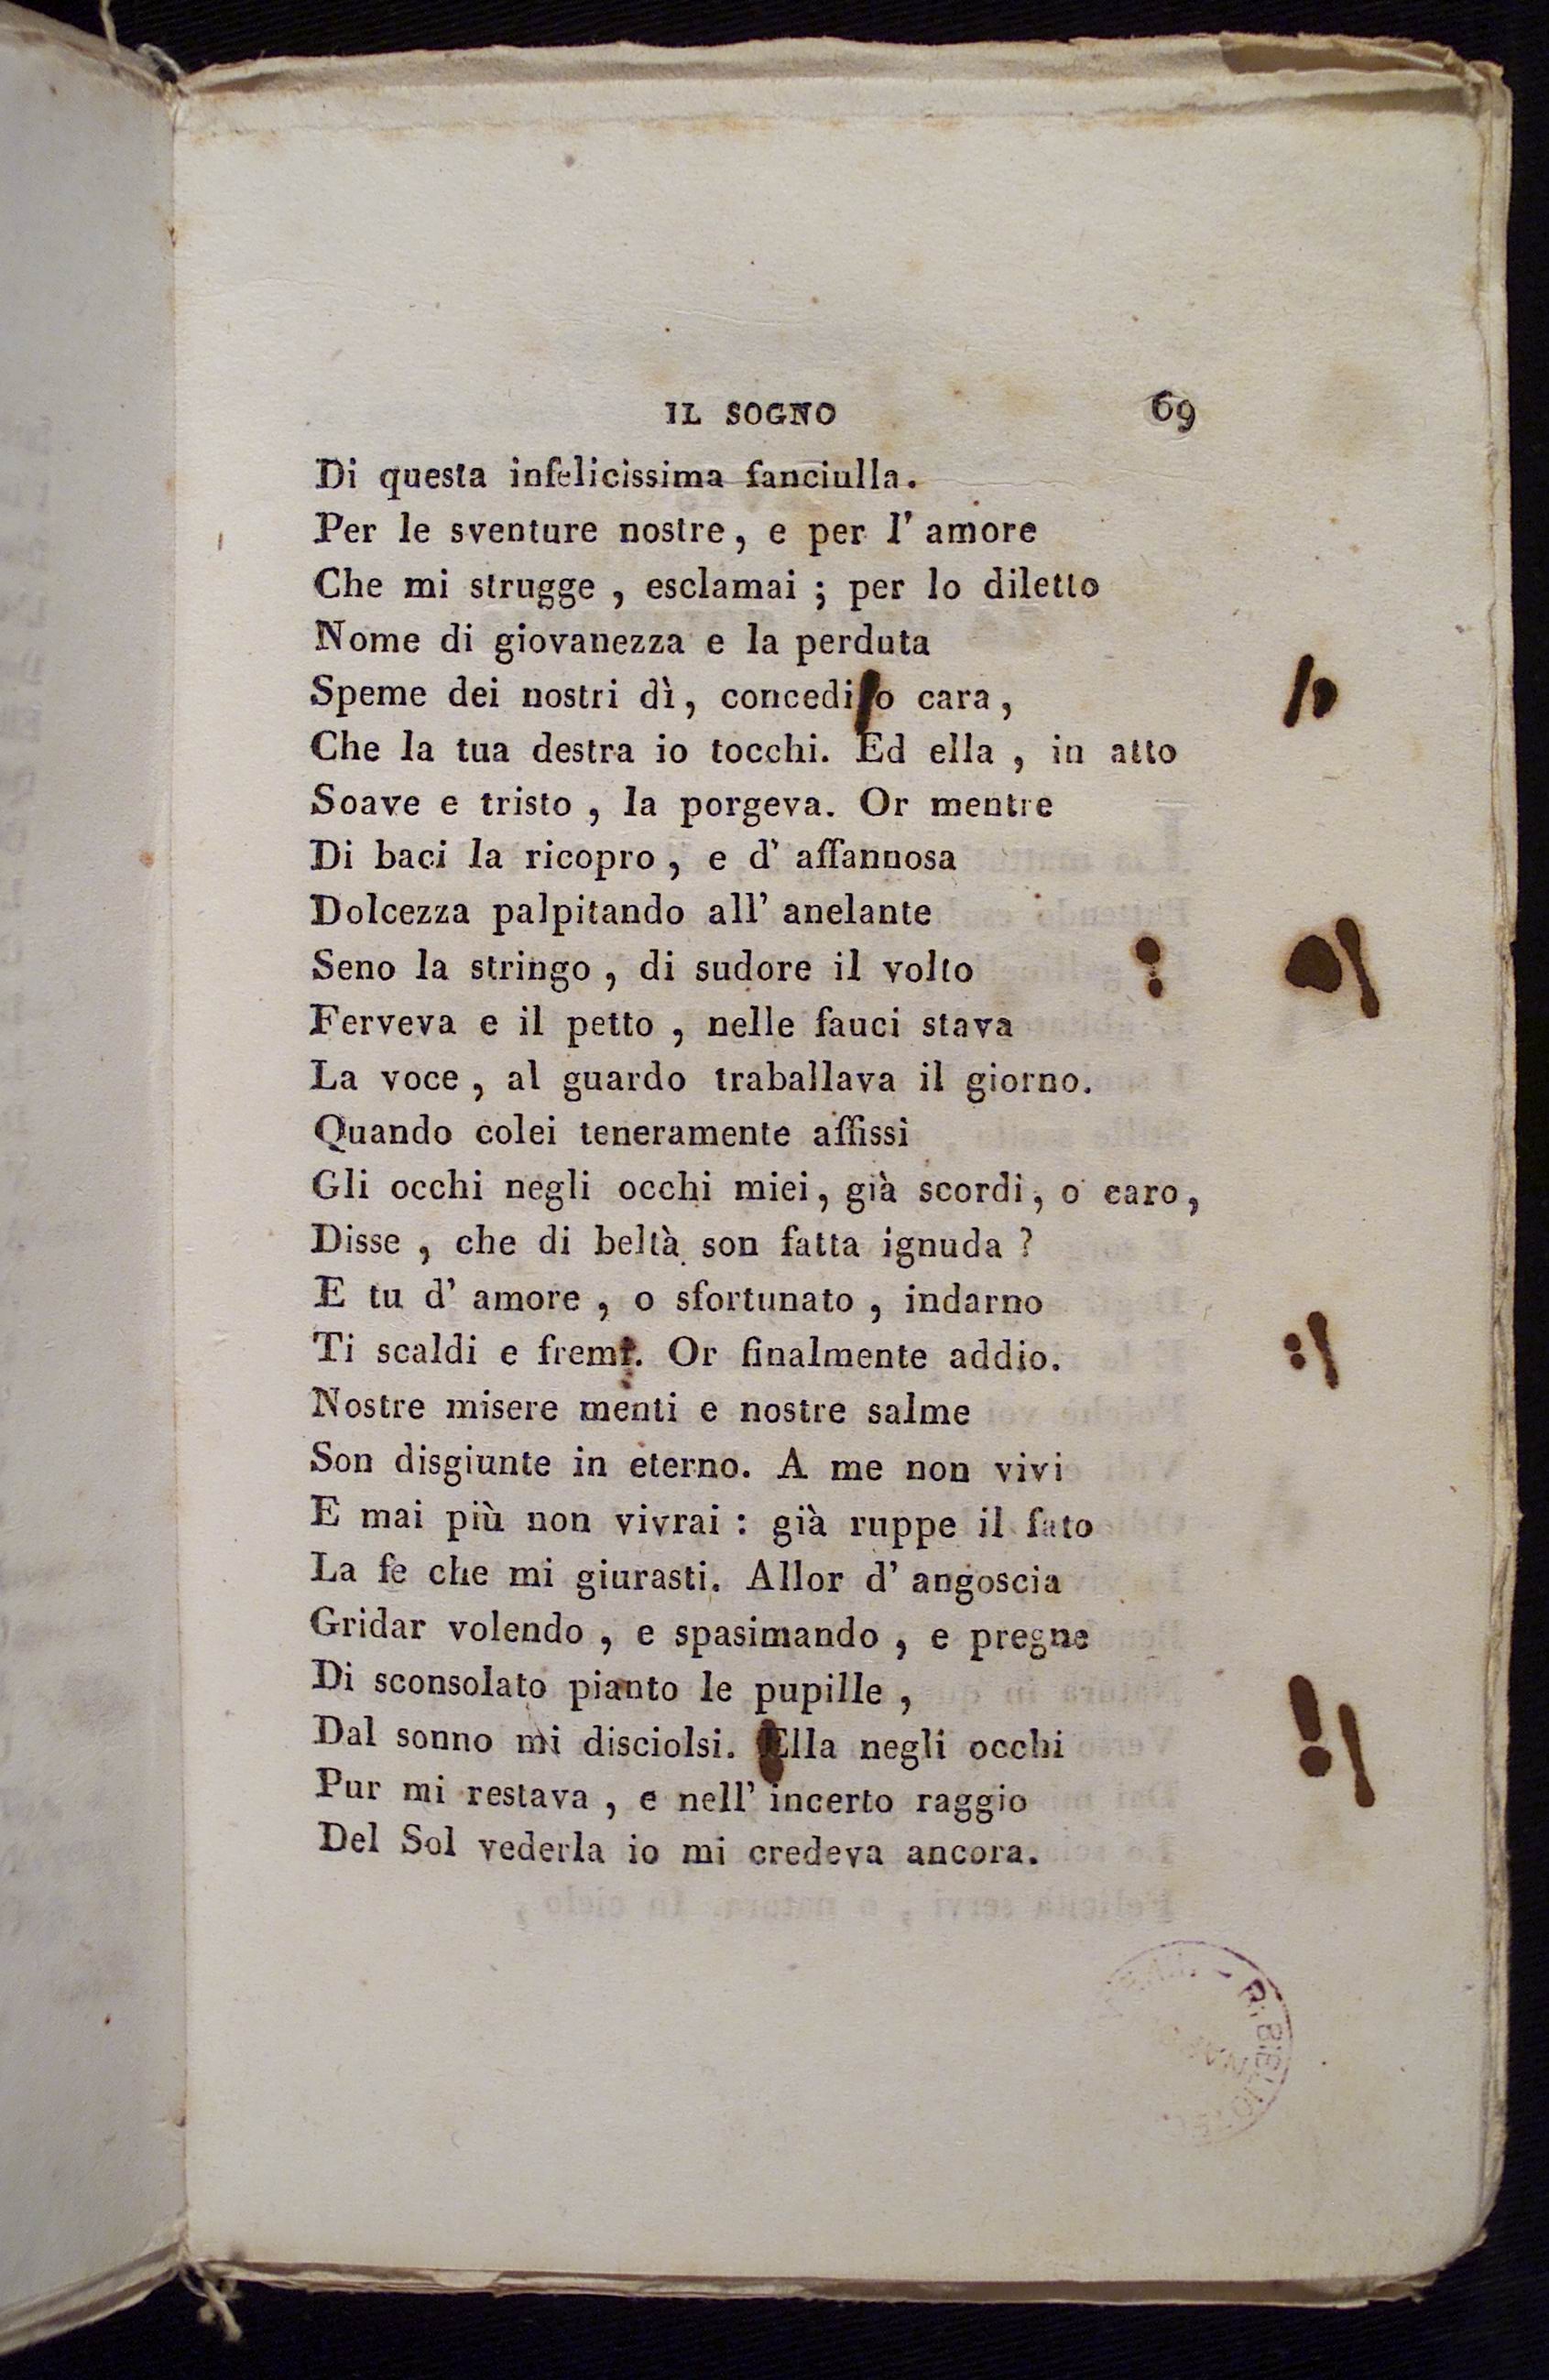 IL SOGNO 69
Di questa infelicissima fanciulla.
Per le sventure nostre, e per l' amore
Che mi strugge, esclamai; per lo diletto
Nome di giovanezza e la perduta
Speme dei nostri dì, concedi o cara,
Che la tua destra io tocchi. Ed ella, in atto
Soave e tristo, la porgeva. Or mentre
Di baci la ricopro, e d' affannosa
Dolcezza palpitando all' anelante
Seno la stringo, di sudore il volto
Ferveva e il petto, nelle fauci stava
La voce, al guardo traballava il giorno.
Quando colei teneramente affissi
Gli occhi negli occhi miei, già scordi, o caro,
Disse, che di beltà son fatta ignuda?
E tu d' amore, o sfortunato, indarno
Ti scaldi e fremi. Or finalmente addio.
Nostre misere menti e nostre salme
Son disgiunte in eterno. A me non vivi
E mai più non vivrai: già ruppe il fato
La fe che mi giurasti. Allor d' angoscia
Gridar volendo, e spasimando, e pregne
Di sconsolato pianto le pupille,
Dal sonno mi disciolsi. Ella negli occhi
Pur mi restava, e nell' incerto raggio
Del Sol vederla io mi credeva ancora.